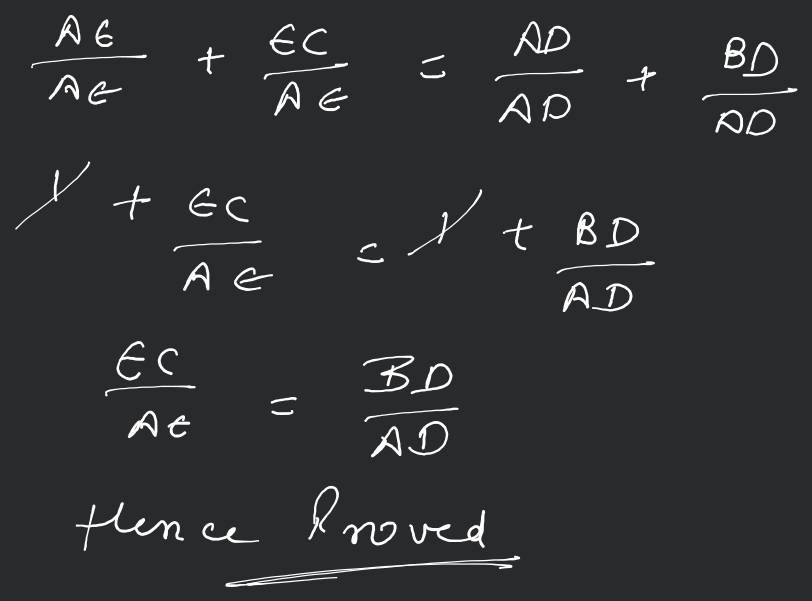 AE/AE + EC/AE = AD/AD + BD/AD
1 + EC/AE = 1 + BD/AD
EC/AE = BD/AD
Hence Proved